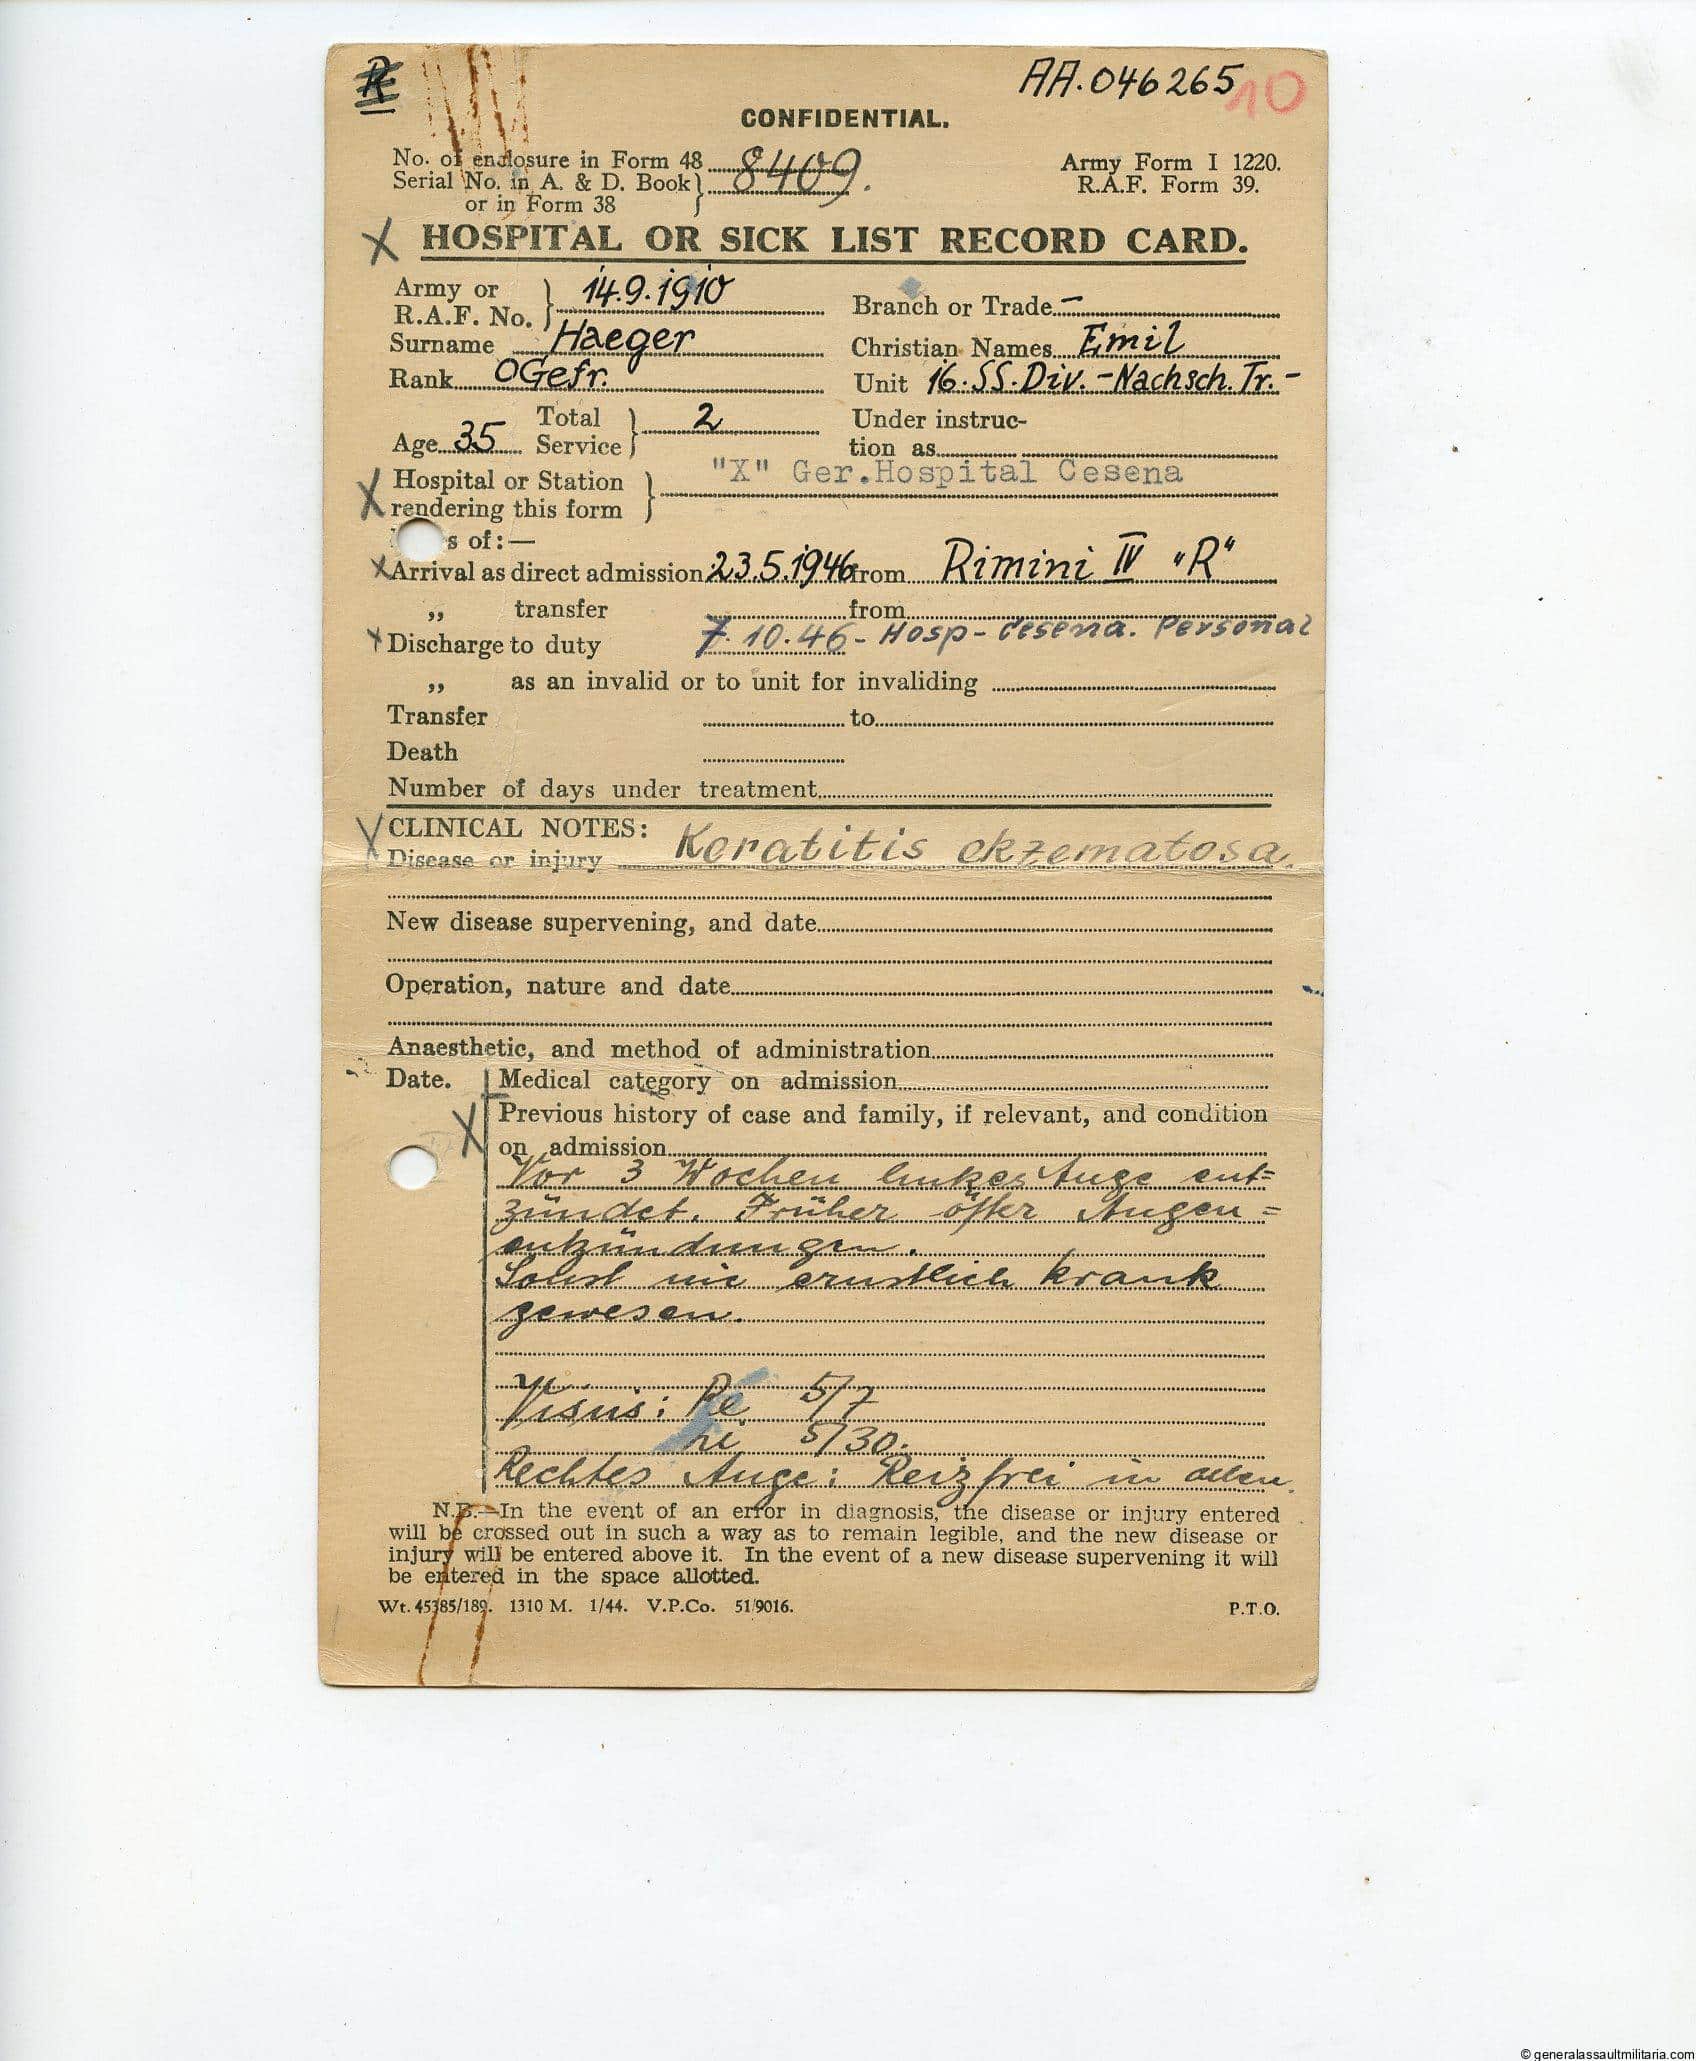 R
AA.046265
10
CONFIDENTIAL.
No. of enclosure in Form 48
Serial No. in A. & D. Book
or in Form 38
8409.
Army Form I 1220.
R.A.F. Form 39.
X HOSPITAL OR SICK LIST RECORD CARD.
Army or
R.A.F. No. 14.9.1910
Branch or Trade –
Surname Haeger
Christian Names Emil
Rank OGefr.
Unit 16.SS.Div.-Nachsch.Tr.-
Age 35 Total Service 2
Under instruc-
tion as
"X" Ger.Hospital Cesena
X Hospital or Station
rendering this form
s of:—
X Arrival as direct admission 23.5.1946 from Rimini IV "R"
„ transfer from
X Discharge to duty 7.10.46 - Hosp - Cesena. Personal
„ as an invalid or to unit for invaliding
Transfer to
Death
Number of days under treatment
X CLINICAL NOTES:
Disease or injury Keratitis ekzematosa.
New disease supervening, and date
Operation, nature and date
Anaesthetic, and method of administration
Date. Medical category on admission
X Previous history of case and family, if relevant, and condition
on admission
Vor 3 Wochen linkes Auge ent=
zündet. Früher öfter Augen=
entzündungen.
Sonst nie ernstlich krank
gewesen.
Visus: Re 5/7
Li 5/30.
Rechtes Auge: Reizfrei in allen
N.B.—In the event of an error in diagnosis, the disease or injury entered
will be crossed out in such a way as to remain legible, and the new disease or
injury will be entered above it. In the event of a new disease supervening it will
be entered in the space allotted.
Wt. 45385/189. 1310 M. 1/44. V.P.Co. 51/9016.
P.T.O.
© generalassaultmilitaria.com